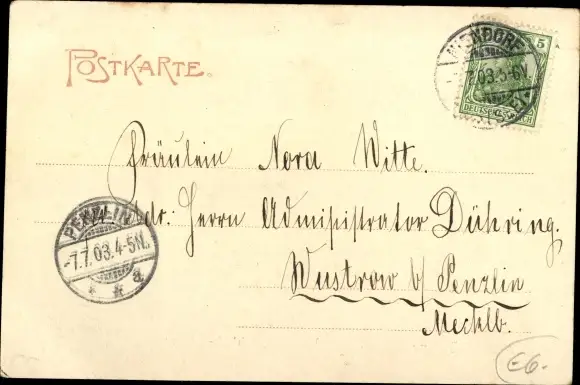 POSTKARTE.
NIENDORF
-7.7.03.5-6V.
5
DEUTSCHES REICH
Fräulein Nora Witte.
Adr: Herrn Administrator Dühring.
Wustrow b/ Penzlin
Mecklb.
PENZLIN
-7.7.03.4-5N.
* * a
E6.